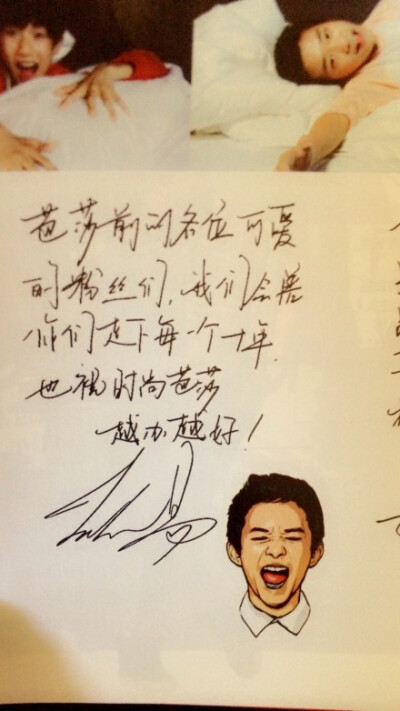 芭莎前的各位可爱
的粉丝们,我们会
你们走下每一个十年.
也祝时尚芭莎
越办越好!